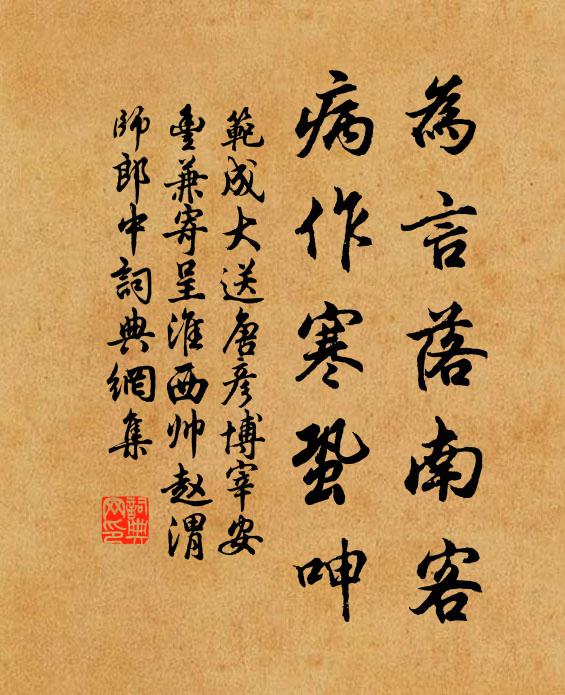 為言落南客
病作寒蛩呻
範成大送唐彥博宰安
豐兼寄呈淮西帅趙渭
師郎中詞典網集
詞典网印